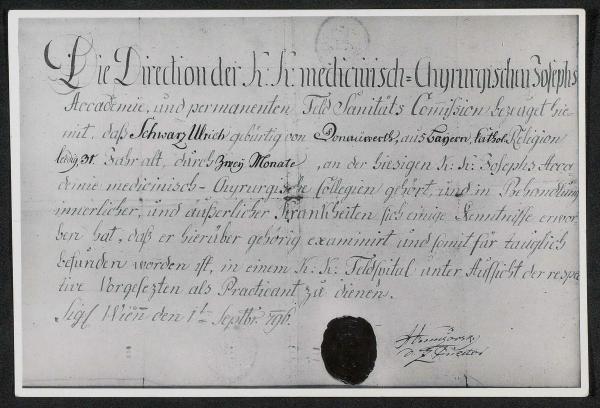 Die Direction der K: K: medicinisch=Chyrurgischen Josephs
Accademie, und permanenten Feld Sanitäts Com̄ission bezeuget hie
mit, daß Schwarz Ulrich gebürtig von Donauwerth, aus Bayern, kathol: Religion
ledig 31. Jahr alt, durch Zwey Monate, an der hiesigen K: K: Josephs Acca
demie medicinisch-Chyrurgische Collegien gehört, und in Behandlung
innerlicher, und äußerlicher Krankheiten sich einige Kenntnisse erwor
ben hat, daß er hierüber gehörig examinirt und somit für tauglich
befunden worden ist, in einem K: K: Feldspital unter Aufsicht der respec
tive Vorgesezten als Practicant zu dienen.
Sigl Wien̄ den 1t Septbr. 796.